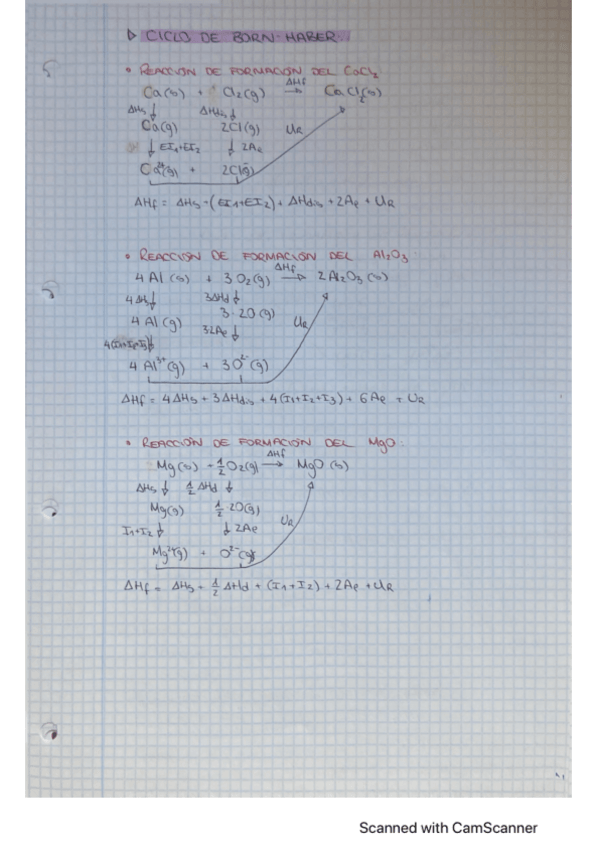 ▷ CICLO DE BORN-HABER.
• REACCIÓN DE FORMACIÓN DEL CaCl₂
Ca(s) + Cl₂(g) ΔHf → CaCl₂(s)
ΔHs ↓ ΔHdis ↓
Ca(g) 2Cl(g) UR
↓ EI₁+EI₂ ↓ 2Ae
Ca²⁺(g) + 2Cl⁻(g)
ΔHf = ΔHs + (EI₁+EI₂) + ΔHdis + 2Ae + UR
• REACCIÓN DE FORMACIÓN DEL Al₂O₃:
4 Al (s) + 3 O₂(g) ΔHf → 2 Al₂O₃ (s)
4 ΔHs ↓ 3ΔHd ↓
4 Al (g) 3·2O (g) UR
4(I₁+I₂+I₃) ↓ 32Ae ↓
4 Al³⁺(g) + 3O²⁻(g)
ΔHf = 4ΔHs + 3ΔHdis + 4(I₁+I₂+I₃) + 6Ae + UR
• REACCIÓN DE FORMACIÓN DEL MgO:
Mg(s) + 1/2 O₂(g) ΔHf → MgO (s)
ΔHs ↓ 1/2 ΔHd ↓
Mg(g) 1/2·2O(g)
I₁+I₂ ↓ ↓ 2Ae UR
Mg²⁺(g) + O²⁻(g)
ΔHf = ΔHs + 1/2 ΔHd + (I₁+I₂) + 2Ae + UR
Scanned with CamScanner